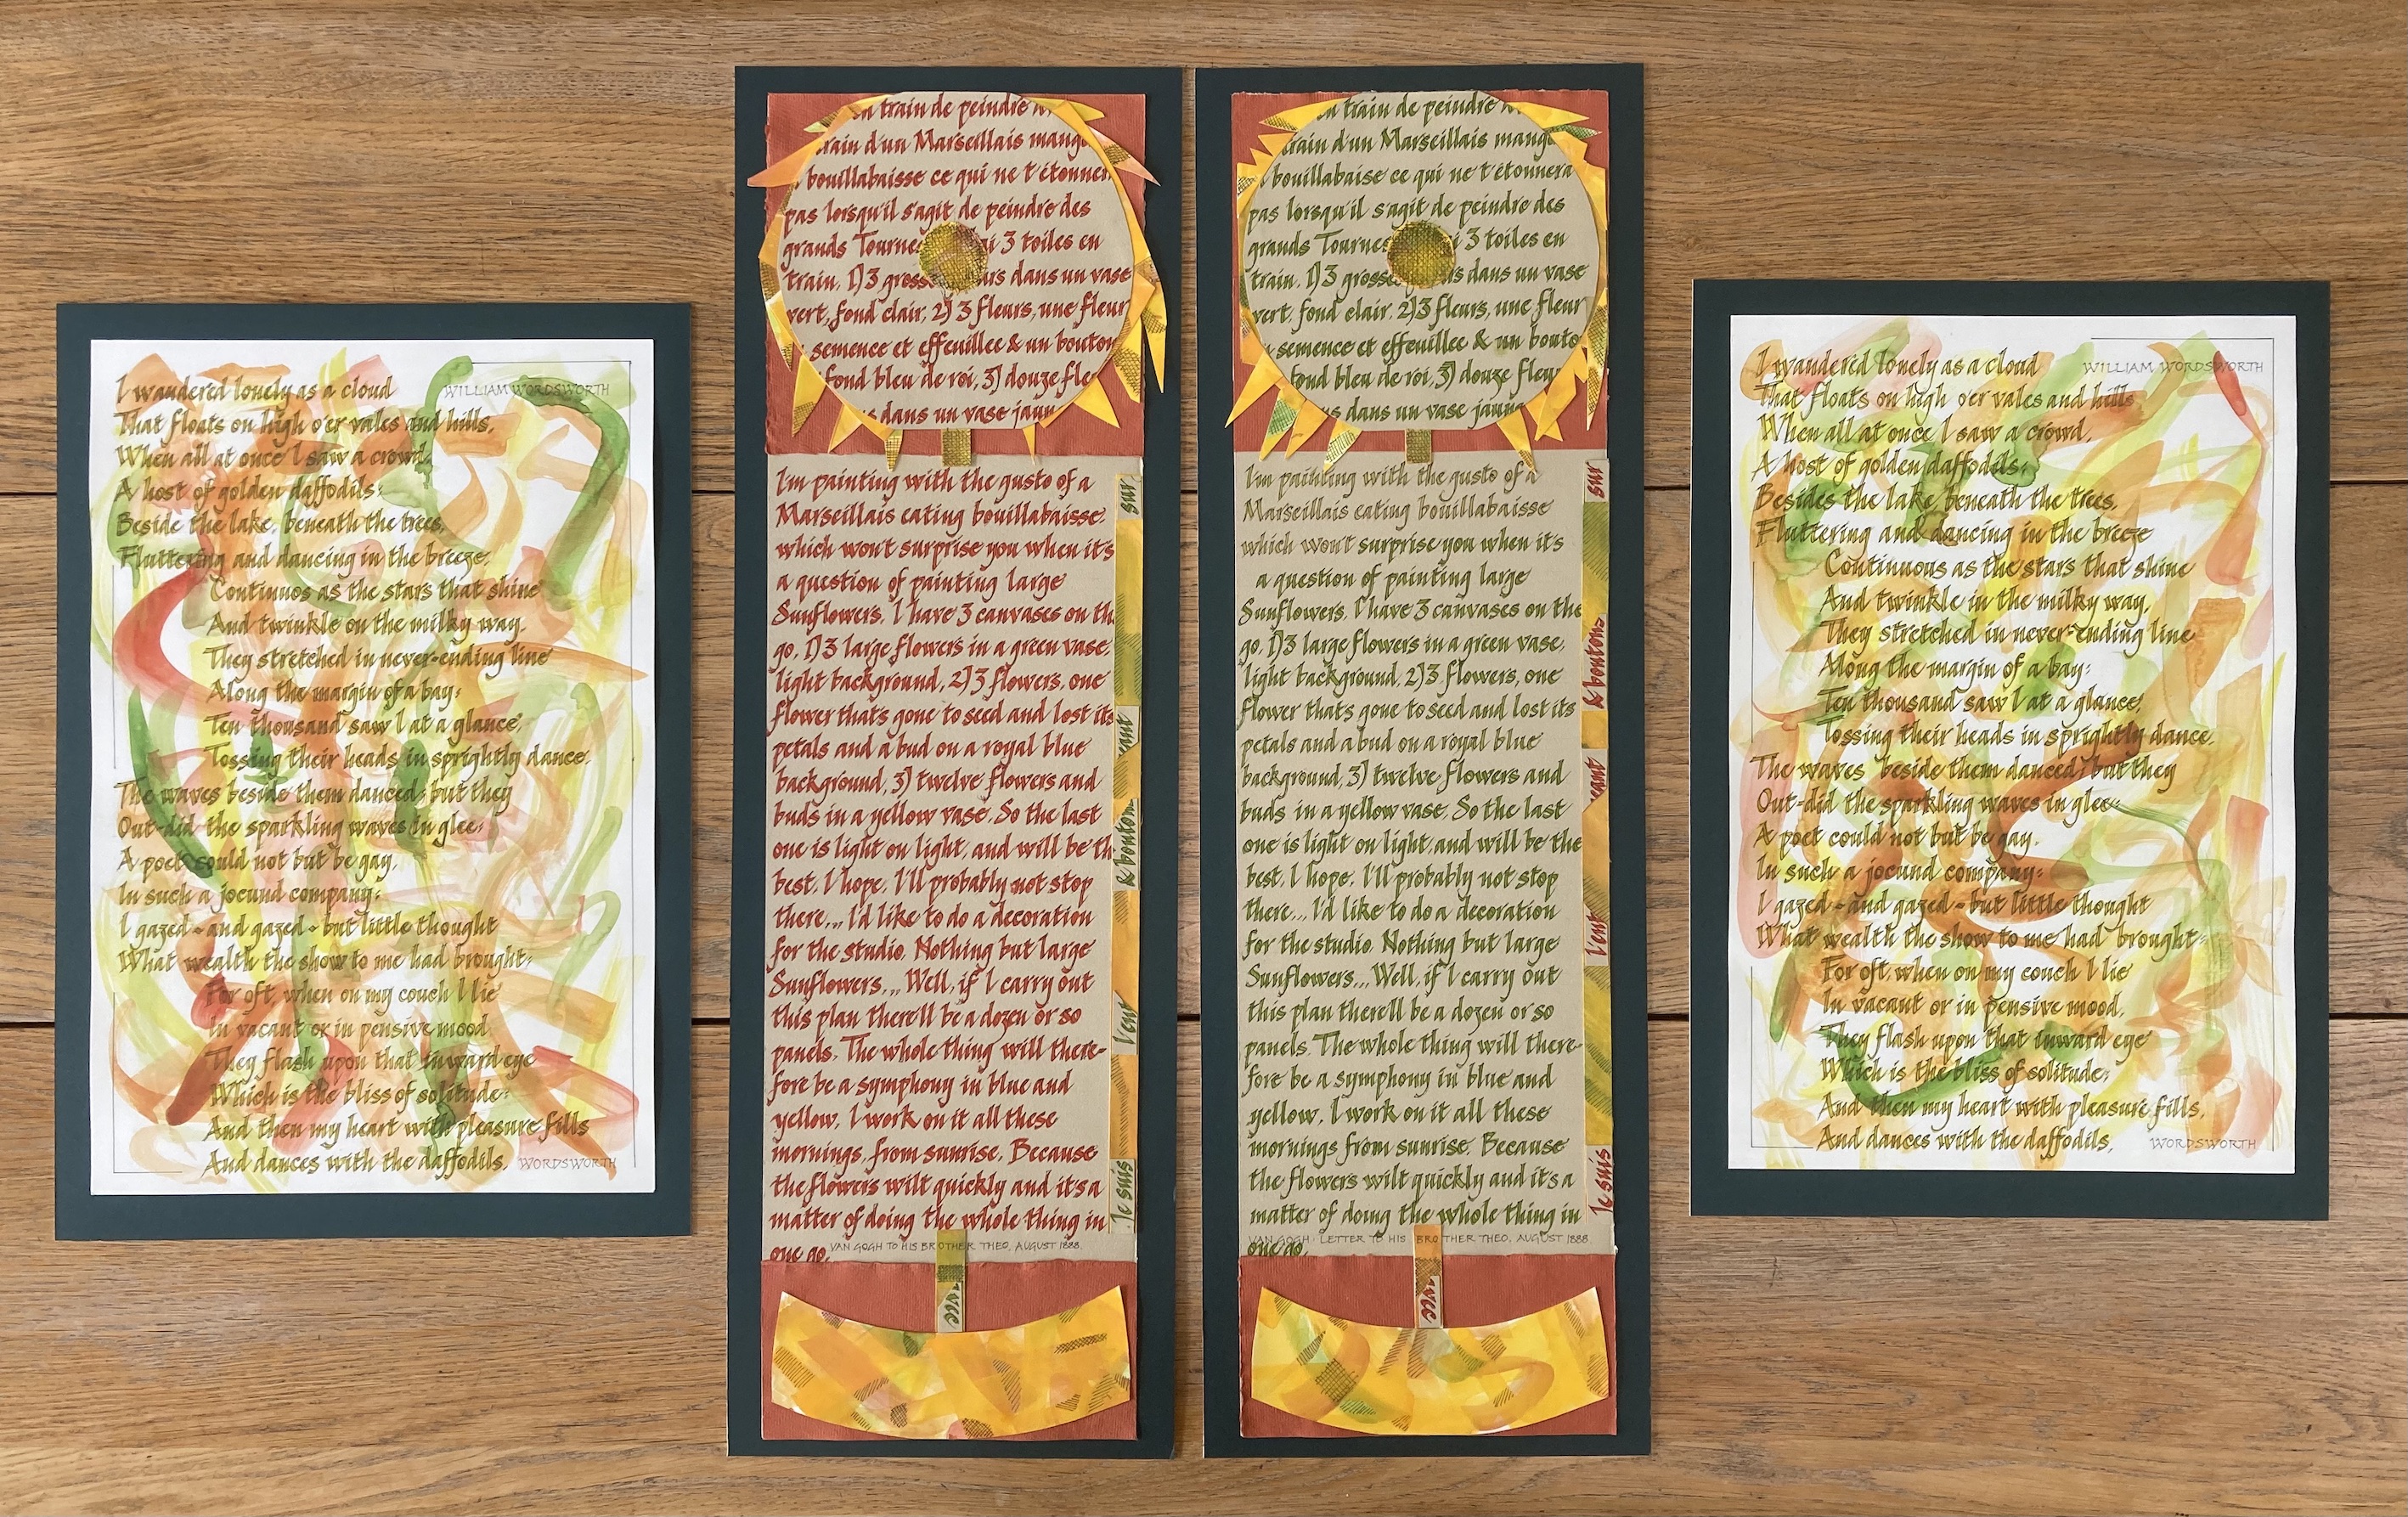 I wandered lonely as a cloud
WILLIAM WORDSWORTH
That floats on high o'er vales and hills,
When all at once I saw a crowd,
A host of golden daffodils;
Beside the lake, beneath the trees,
Fluttering and dancing in the breeze.
Continuos as the stars that shine
And twinkle on the milky way,
They stretched in never-ending line
Along the margin of a bay:
Ten thousand saw I at a glance,
Tossing their heads in sprightly dance.
The waves beside them danced; but they
Out-did the sparkling waves in glee;
A poet could not but be gay,
In such a jocund company:
I gazed - and gazed - but little thought
What wealth the show to me had brought:
For oft, when on my couch I lie
In vacant or in pensive mood
They flash upon that inward eye
Which is the bliss of solitude;
And then my heart with pleasure fills
And dances with the daffodils.
WORDSWORTH
train de peindre
train d'un Marseillais mange
bouillabaisse ce qui ne t'étonnera
pas lorsqu'il s'agit de peindre des
grands 3 toiles en
train. 1) 3 dans un vase
vert, fond clair, 2) 3 fleurs, une fleur
semence et effeuillee & un bouton
fond bleu de roi, 3) douze fle
dans un vase jaun
I'm painting with the gusto of a
Marseillais eating bouillabaisse,
which won't surprise you when it's
a question of painting large
Sunflowers. I have 3 canvases on the
go, 1) 3 large flowers in a green vase,
light background, 2) 3 flowers, one
flower that's gone to seed and lost its
petals and a bud on a royal blue
background, 3) twelve flowers and
buds in a yellow vase. So the last
one is light on light, and will be th
best, I hope. I'll probably not stop
there... I'd like to do a decoration
for the studio. Nothing but large
Sunflowers... Well, if I carry out
this plan there'll be a dozen or so
panels. The whole thing will there-
fore be a symphony in blue and
yellow. I work on it all these
mornings, from sunrise. Because
the flowers wilt quickly and it's a
matter of doing the whole thing in
one go.
VAN GOGH TO HIS BROTHER THEO, AUGUST 1888.
sur
& bouton
l'ent
Je suis
avec
train de peindre
train d'un Marseillais mange
bouillabaise ce qui ne t'étonnera
pas lorsqu'il s'agit de peindre des
grands 3 toiles en
train. 1) 3 dans un vase
vert, fond clair, 2) 3 fleurs, une fleur
semence et effeuillee & un bouto
fond bleu de roi, 3) douze fleur
dans un vase jaune
I'm painting with the gusto of a
Marseillais eating bouillabaisse
which won't surprise you when it's
a question of painting large
Sunflowers. I have 3 canvases on the
go, 1) 3 large flowers in a green vase,
light background, 2) 3 flowers, one
flower that's gone to seed and lost its
petals and a bud on a royal blue
background, 3) twelve flowers and
buds in a yellow vase. So the last
one is light on light, and will be the
best, I hope. I'll probably not stop
there... I'd like to do a decoration
for the studio. Nothing but large
Sunflowers... Well, if I carry out
this plan there'll be a dozen or so
panels. The whole thing will there-
fore be a symphony in blue and
yellow. I work on it all these
mornings from sunrise. Because
the flowers wilt quickly and it's a
matter of doing the whole thing in
one go.
VAN GOGH: LETTER TO HIS BROTHER THEO, AUGUST 1888
sur
& boutons
l'ent
Je suis
avec
I wandered lonely as a cloud
WILLIAM WORDSWORTH
That floats on high o'er vales and hills
When all at once I saw a crowd,
A host of golden daffodils;
Besides the lake, beneath the trees,
Fluttering and dancing in the breeze
Continuous as the stars that shine
And twinkle in the milky way,
They stretched in never-ending line
Along the margin of a bay:
Ten thousand saw I at a glance,
Tossing their heads in sprightly dance.
The waves beside them danced; but they
Out-did the sparkling waves in glee:
A poet could not but be gay,
In such a jocund company:
I gazed - and gazed - but little thought
What wealth the show to me had brought:
For oft, when on my couch I lie
In vacant or in pensive mood,
They flash upon that inward eye
Which is the bliss of solitude;
And then my heart with pleasure fills,
And dances with the daffodils.
WORDSWORTH